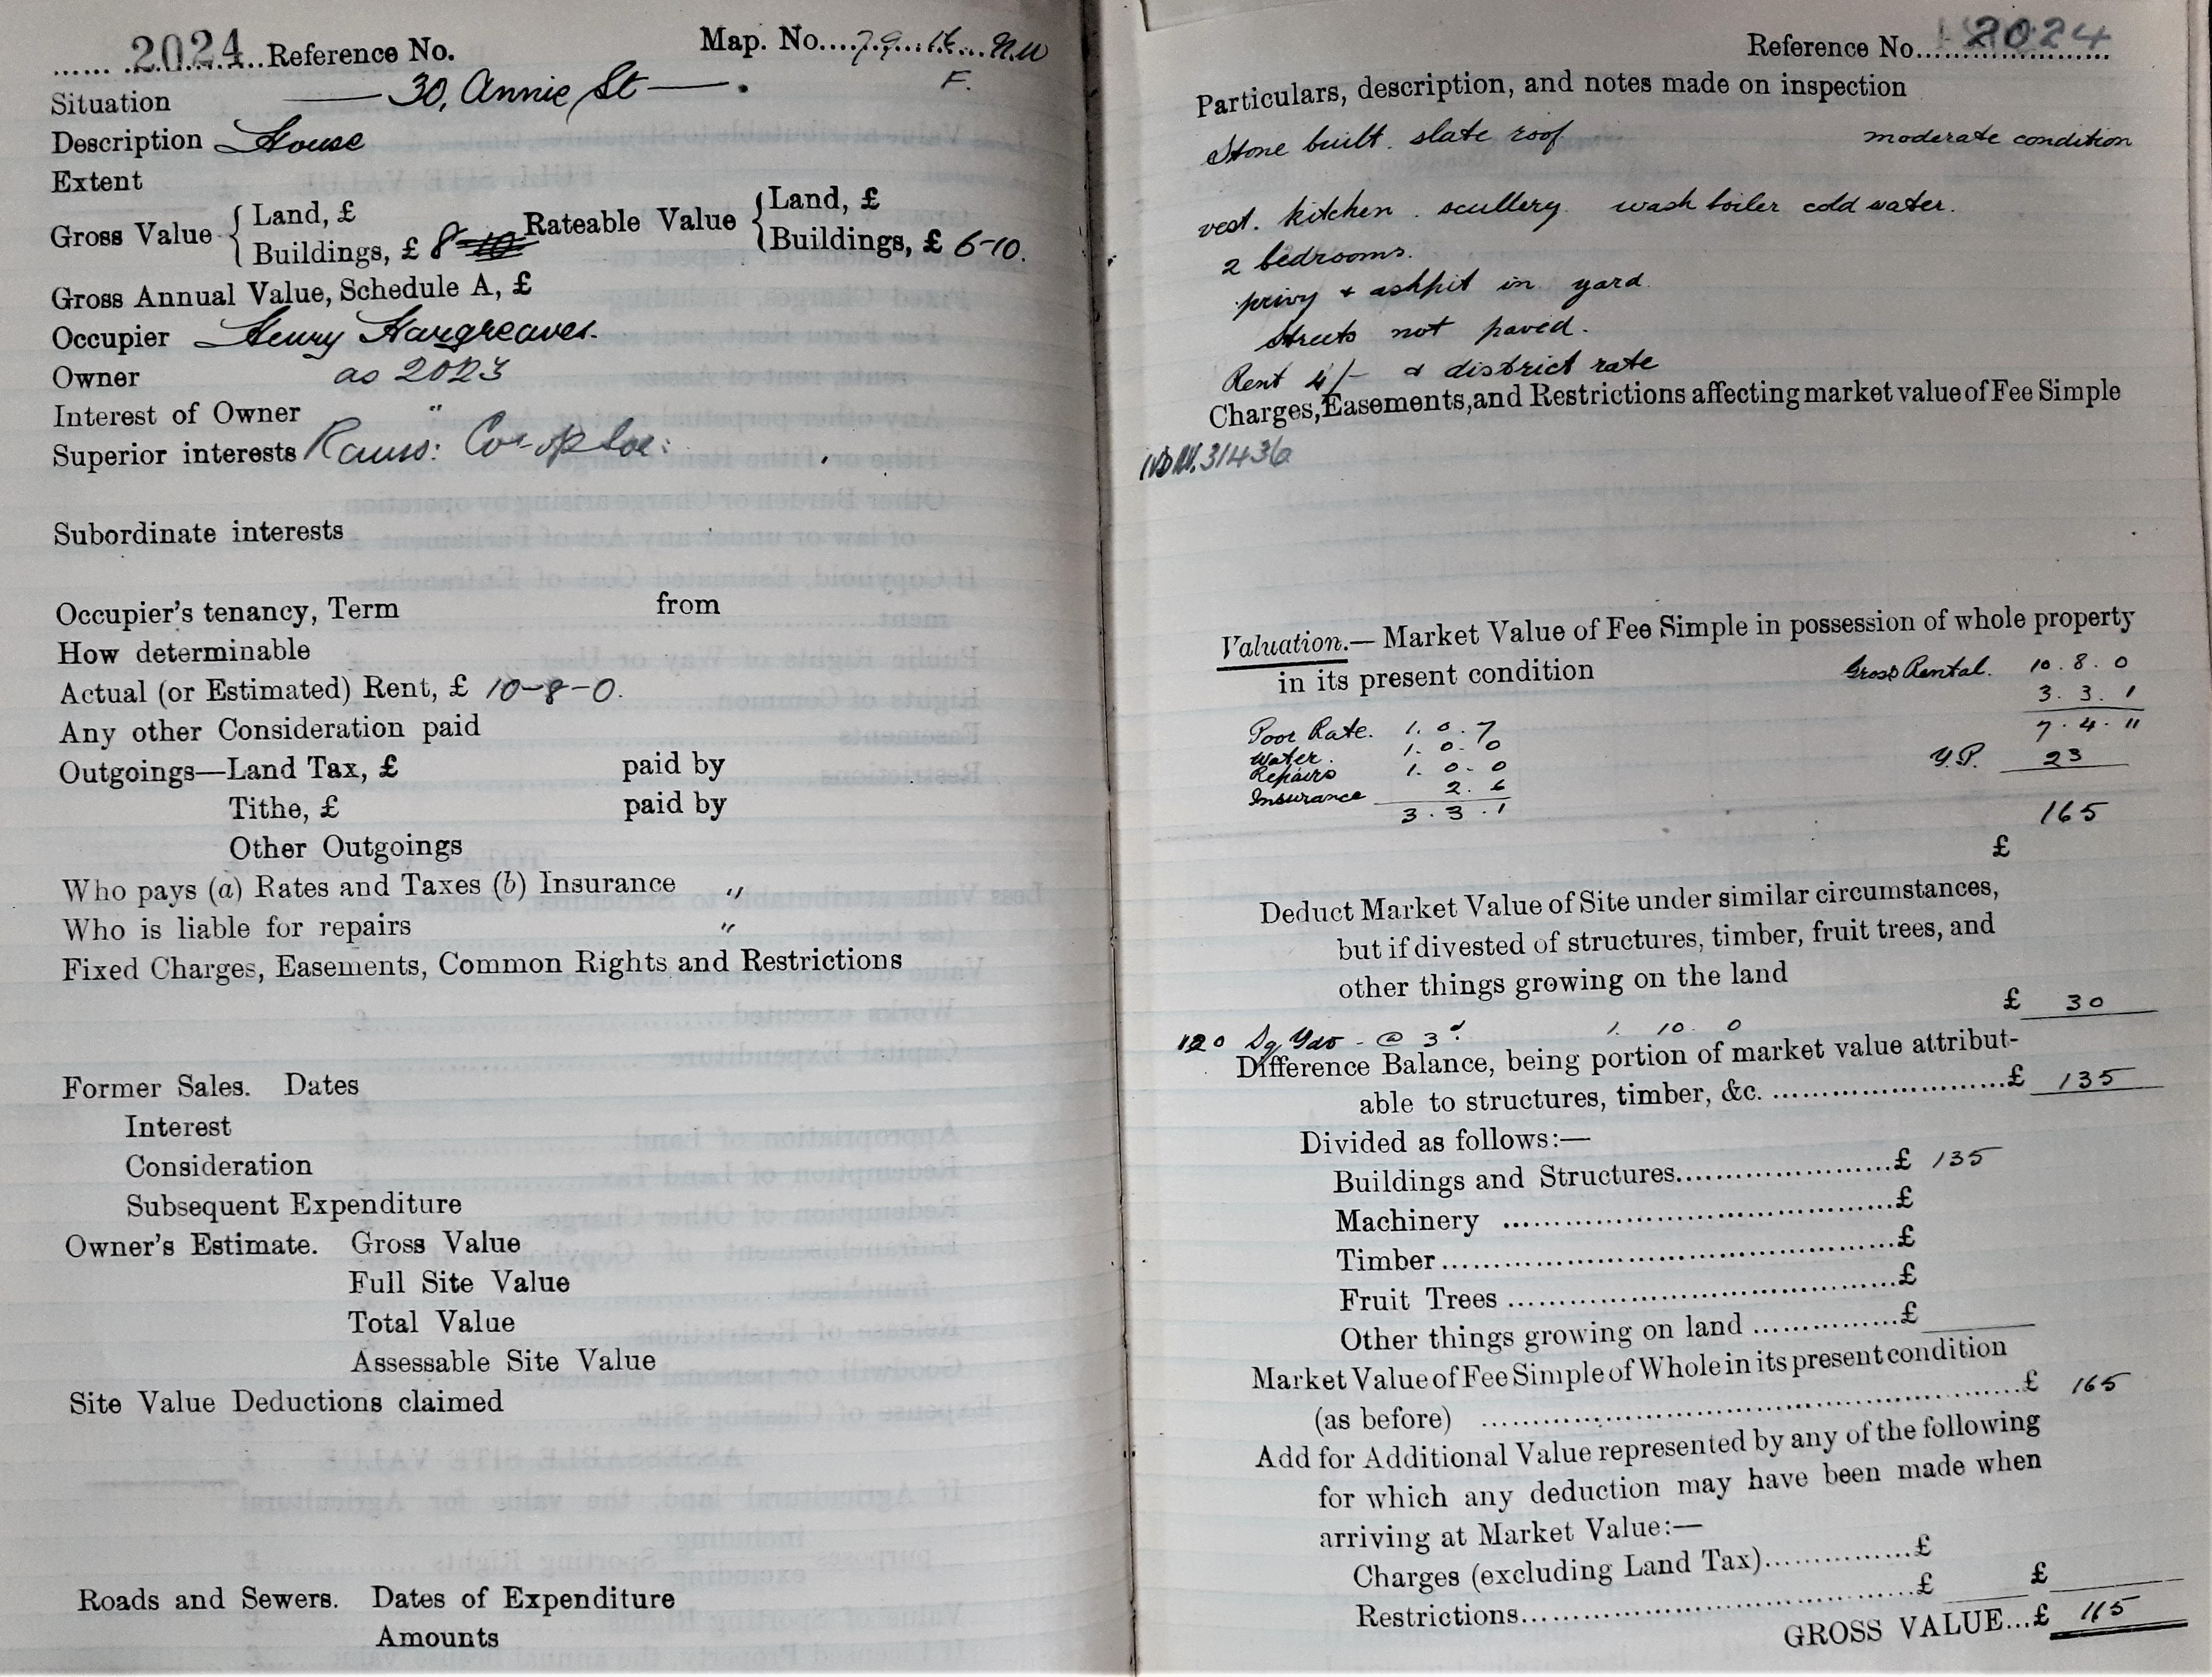 ...... 2024 .. Reference No.
Map. No.... 79. 16. N.W
F.
Situation — 30, Annie St — .
Description House
Extent
Gross Value { Land, £
Buildings, £ 8
Rateable Value { Land, £
Buildings, £ 6-10.
Gross Annual Value, Schedule A, £
Occupier Henry Hargreaves.
Owner as 2023
Interest of Owner "
Superior interests Co-op Soc:
Subordinate interests
Occupier's tenancy, Term from
How determinable
Actual (or Estimated) Rent, £ 10-8-0.
Any other Consideration paid
Outgoings—Land Tax, £ paid by
Tithe, £ paid by
Other Outgoings
Who pays (a) Rates and Taxes (b) Insurance "
Who is liable for repairs "
Fixed Charges, Easements, Common Rights and Restrictions
Former Sales. Dates
Interest
Consideration
Subsequent Expenditure
Owner's Estimate. Gross Value
Full Site Value
Total Value
Assessable Site Value
Site Value Deductions claimed
Roads and Sewers. Dates of Expenditure
Amounts
Reference No. 2024
Particulars, description, and notes made on inspection
Stone built. slate roof moderate condition
vest. kitchen. scullery. wash boiler cold water.
2 bedrooms.
privy & ashpit in yard.
Streets not paved.
Rent 4/- & district rate
Charges, Easements, and Restrictions affecting market value of Fee Simple
31436
Valuation.— Market Value of Fee Simple in possession of whole property
in its present condition
Gross Rental. 10. 8. 0
3. 3. 1
7. 4. 11
Y.P. 23
165
Poor Rate. 1. 0. 7
Water. 1. 0. 0
Repairs 1. 0. 0
Insurance 2. 6
3. 3. 1
£
Deduct Market Value of Site under similar circumstances,
but if divested of structures, timber, fruit trees, and
other things growing on the land
£ 30
120 Sq Yds - @ 3d. 1. 10. 0
Difference Balance, being portion of market value attribut-
able to structures, timber, &c. ........................£ 135
Divided as follows:—
Buildings and Structures........................£ 135
Machinery ........................£
Timber........................£
Fruit Trees ........................£
Other things growing on land ...............£
Market Value of Fee Simple of Whole in its present condition
(as before) ........................£ 165
Add for Additional Value represented by any of the following
for which any deduction may have been made when
arriving at Market Value:—
Charges (excluding Land Tax)...............£
Restrictions........................£ £
GROSS VALUE...£ 165